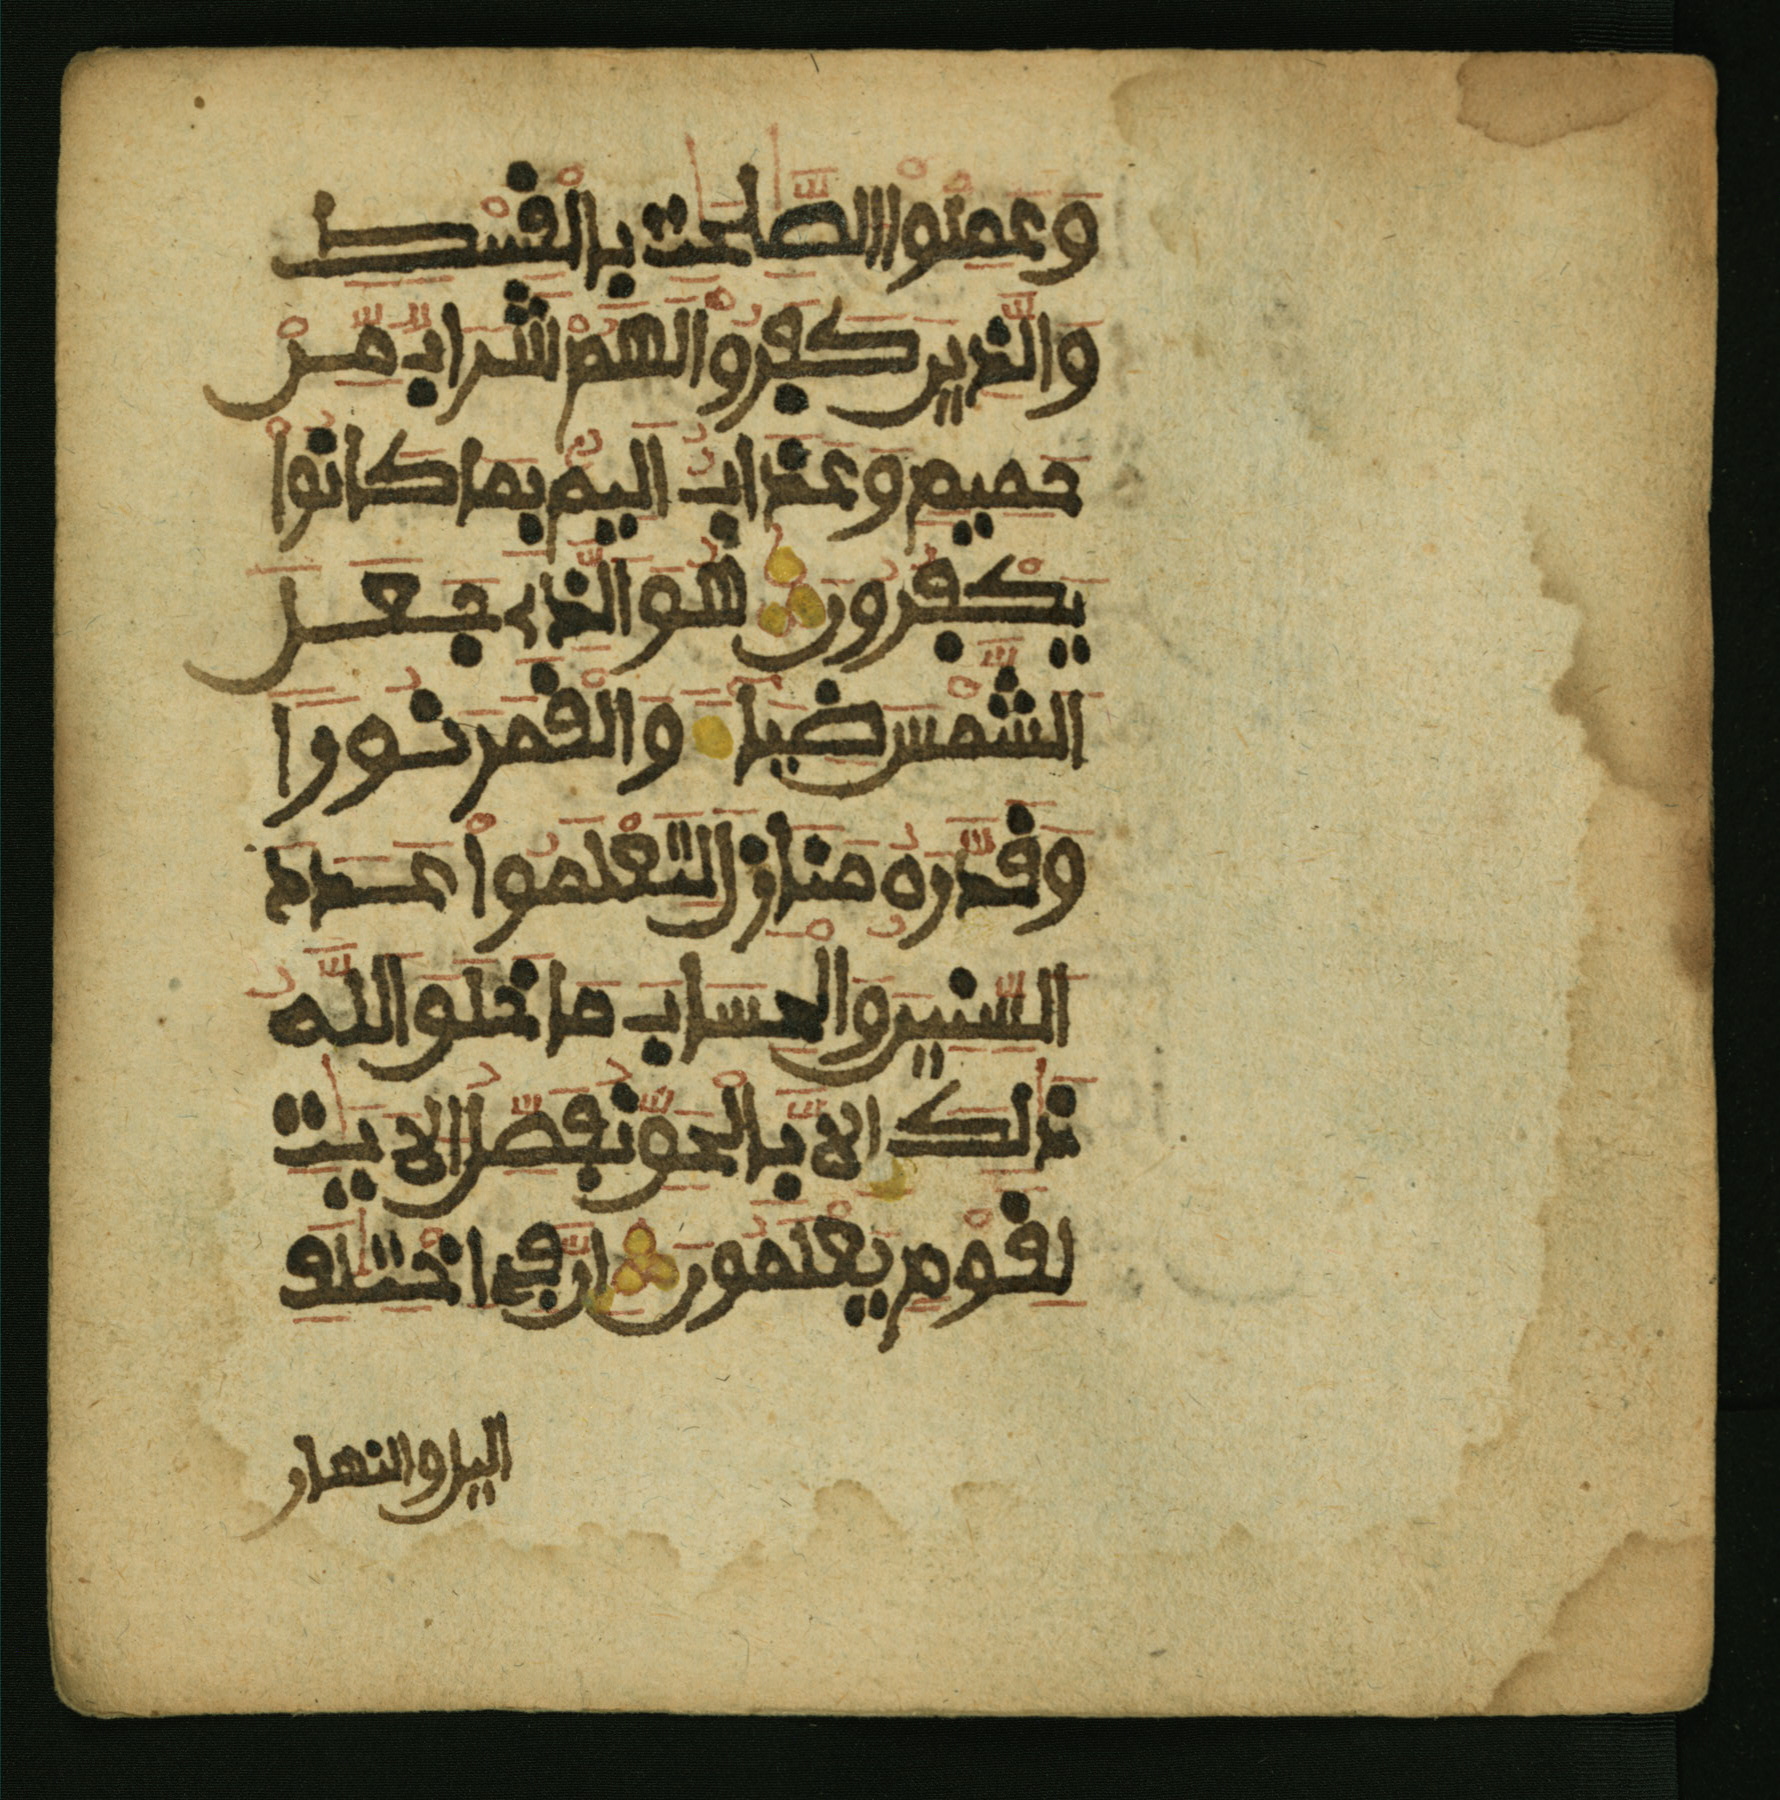 وَعَمِلُوا۟ الصَّٰلِحَٰتِ بِالْقِسْطِ
وَالَّذِينَ كَفَرُوا۟ لَهُمْ شَرَابٌ مِّنْ
حَمِيمٍ وَعَذَابٌ اَلِيمٌ بِمَا كَانُوا۟
يَكْفُرُونَ هُوَ الَّذِى جَعَلَ
الشَّمْسَ ضِيَاءً وَالْقَمَرَ نُورًا
وَقَدَّرَهُ مَنَازِلَ لِتَعْلَمُوا۟ عَدَدَ
السِّنِينَ وَالْحِسَابَ مَا خَلَقَ اللَّهُ
ذَٰلِكَ اِلَّا بِالْحَقِّ نُفَصِّلُ الْاَيَٰتِ
لِقَوْمٍ يَعْلَمُونَ اِنَّ فِى اخْتِلَٰفِ
اليل والنهار